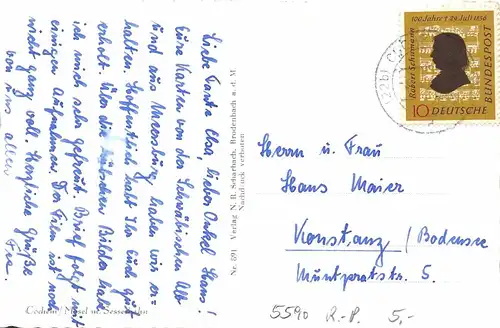 Liebe Tante Elsa, lieber Onkel Hans!
Eure Karten von der Schwäbischen Alb
und aus Meersburg haben wir er-
halten. Hoffentlich habt Ihr Euch gut
erholt. Über die hübschen Bilder habe
ich mich sehr gefreut. Brief folgt mit
einigen Aufnahmen. Der Film ist noch
nicht ganz voll. Herzliche Grüße
von uns allen
Cochem / Mosel m. Sesselbahn
Nr. 891 Verlag N. B. Scharbach, Brodenbach a. d. M
Nachdruck verboten
100. Jahre † 29. Juli 1856
Robert Schumann
10 DEUTSCHE BUNDESPOST
Herrn u. Frau
Hans Maier
Konstanz / Bodensee
Muntpratstr. 5.
5590 R.-P. 5,-